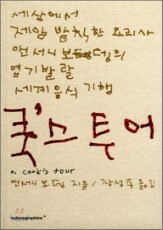 세상에서
제일 발칙한 요리사
앤서니 보뎅의
엽기발랄
세계음식 기행
쿡스 투어
a cook's tour
앤서니 보뎅 지음 / 장성주 옮김